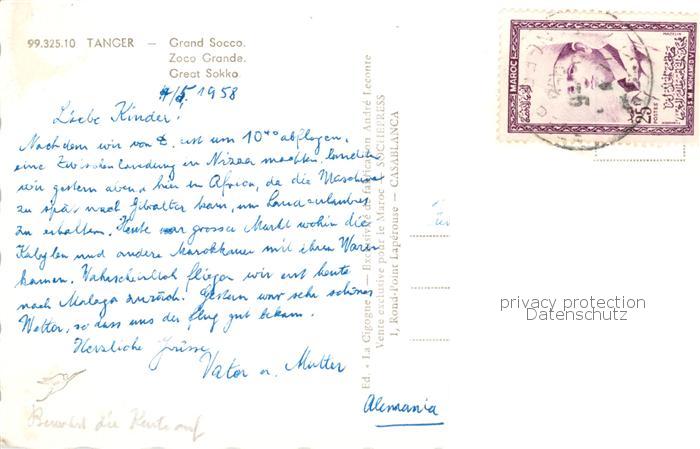 99.325.10 TANGER — Grand Socco.
Zoco Grande.
Great Sokko.
4/5. 1958
Liebe Kinder!
Nachdem wir von Z. erst um 10⁴⁰ abflogen,
eine Zwischenlandung in Nizza machten, landeten
wir gestern abend hier in Africa, da die Maschine
zu spät nach Gibralter kam, um Landeerlaubnis
zu erhalten. Heute war grosser Markt wohin die
Kabylen und andere Marokkaner mit ihren Waren
kamen. Wahrscheinlich fliegen wir erst heute
nach Malaga zurück. Gestern war sehr schönes
Wetter, so dass uns der Flug gut bekam.
Herzliche Grüsse
Vater u. Mutter
Bewahrt die Karte auf
Ed. « La Cigogne » — Exclusivité de fabrication André Leconte
Vente exclusive pour le Maroc : SOCHEPRESS
1, Rond-Point Lapérouse — CASABLANCA
Alemania
MAROC
25
POSTES
S.M. MOHAMED V
privacy protection
Datenschutz